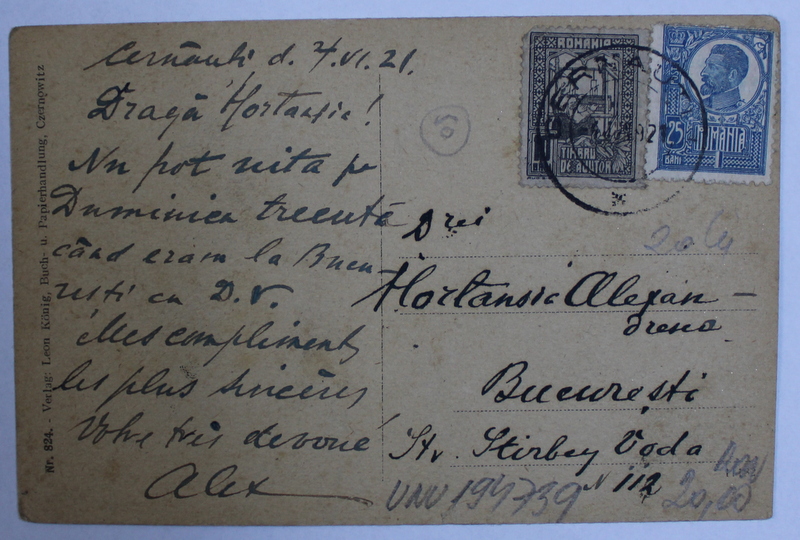 Cernăuti d. 7.VI.21.
Dragă Hortansie!
Nu pot uita pe
Duminica trecută
când eram la Bucu
resti cu D.V.
Mes compliments
les plus sincères
Votre très devoué
Alex
Nr. 824. - Verlag: Leon König, Buch- u. Papierhandlung, Czernowitz
ROMANIA
TIMBRU
DE AJUTOR
25
BANI
ROMANIA
1
CERNAUTI
20 lei
Drei
Hortansie Alexan-
drescu
București
Str. Stirbey Voda
N 112
UNU 194739
20,00